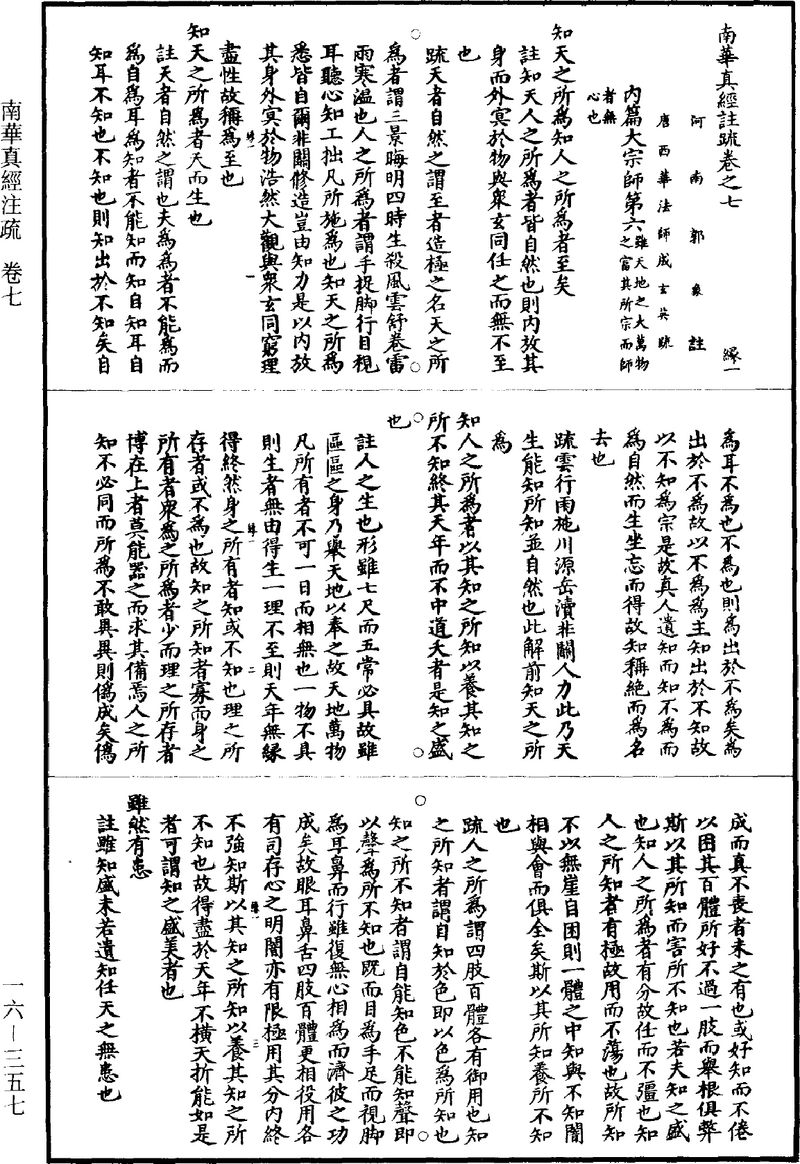 南華真經注疏　卷七
一六—三五七
南華真經註疏卷之七　　緣一
河南郭象註
唐西華法師成玄英疏
內篇大宗師第六雖天地之大萬物之富其所宗而師
者無心也
知天之所為知人之所為者至矣
註知天人之所為者皆自然也則內放其
身而外冥於物與衆玄同任之而無不至
也
疏天者自然之謂至者造極之名天之所
為者謂三景晦明四時生殺風雲舒卷雷
雨寒溫也人之所為者謂手捉脚行目視
耳聽心知工拙凡所施為也知天之所為
悉皆自爾非關修造豈由知力是以內放
其身外冥於物浩然大觀與衆玄同窮理
盡性故稱為至也
知天之所為者天而生也
註天者自然之謂也夫為為者不能為而
為自為耳為知者不能知而知自知耳自
知耳不知也不知也則知出於不知矣自
為耳不為也不為也則為出於不為矣為
出於不為故以不為為主知出於不知故
以不知為宗是故真人遺知而知不為而
為自然而生坐忘而得故知稱絕而為名
去也
疏雲行雨施川源岳瀆非關人力此乃天
生能知所知並自然也此解前知天之所
為
知人之所為者以其知之所知以養其知之
所不知終其天年而不中道夭者是知之盛
也
註人之生也形雖七尺而五常必具故雖
區區之身乃舉天地以奉之故天地萬物
凡所有者不可一日而相無也一物不具
則生者無由得生一理不至則天年無緣
得終然身之所有者知或不知也理之所
存者或不為也故知之所知者寡而身之
所有者衆為之所為者少而理之所存者
博在上者莫能器之而求其備焉人之所
知不必同而所為不敢異異則偽成矣偽
成而真不喪者未之有也或好知而不倦
以困其百體所好不過一肢而舉根俱弊
斯以其所知而害所不知也若夫知之盛
也知人之所為者有分故任而不彊也知
人之所知者有極故用而不蕩也故所知
不以無崖自困則一體之中知與不知闇
相與會而俱全矣斯以其所知養所不知
也
疏人之所為謂四肢百體各有御用也知
之所知者謂自知於色即以色為所知也
知之所不知者謂自能知色不能知聲即
以聲為所不知也既而目為手足而視脚
為耳鼻而行雖復無心相為而濟彼之功
成矣故眼耳鼻舌四肢百體更相役用各
有司存心之明闇亦有限極用其分內終
不強知斯以其知之所知以養其知之所
不知也故得盡於天年不橫夭折能如是
者可謂知之盛美者也
雖然有患
註雖知盛未若遺知任天之無患也